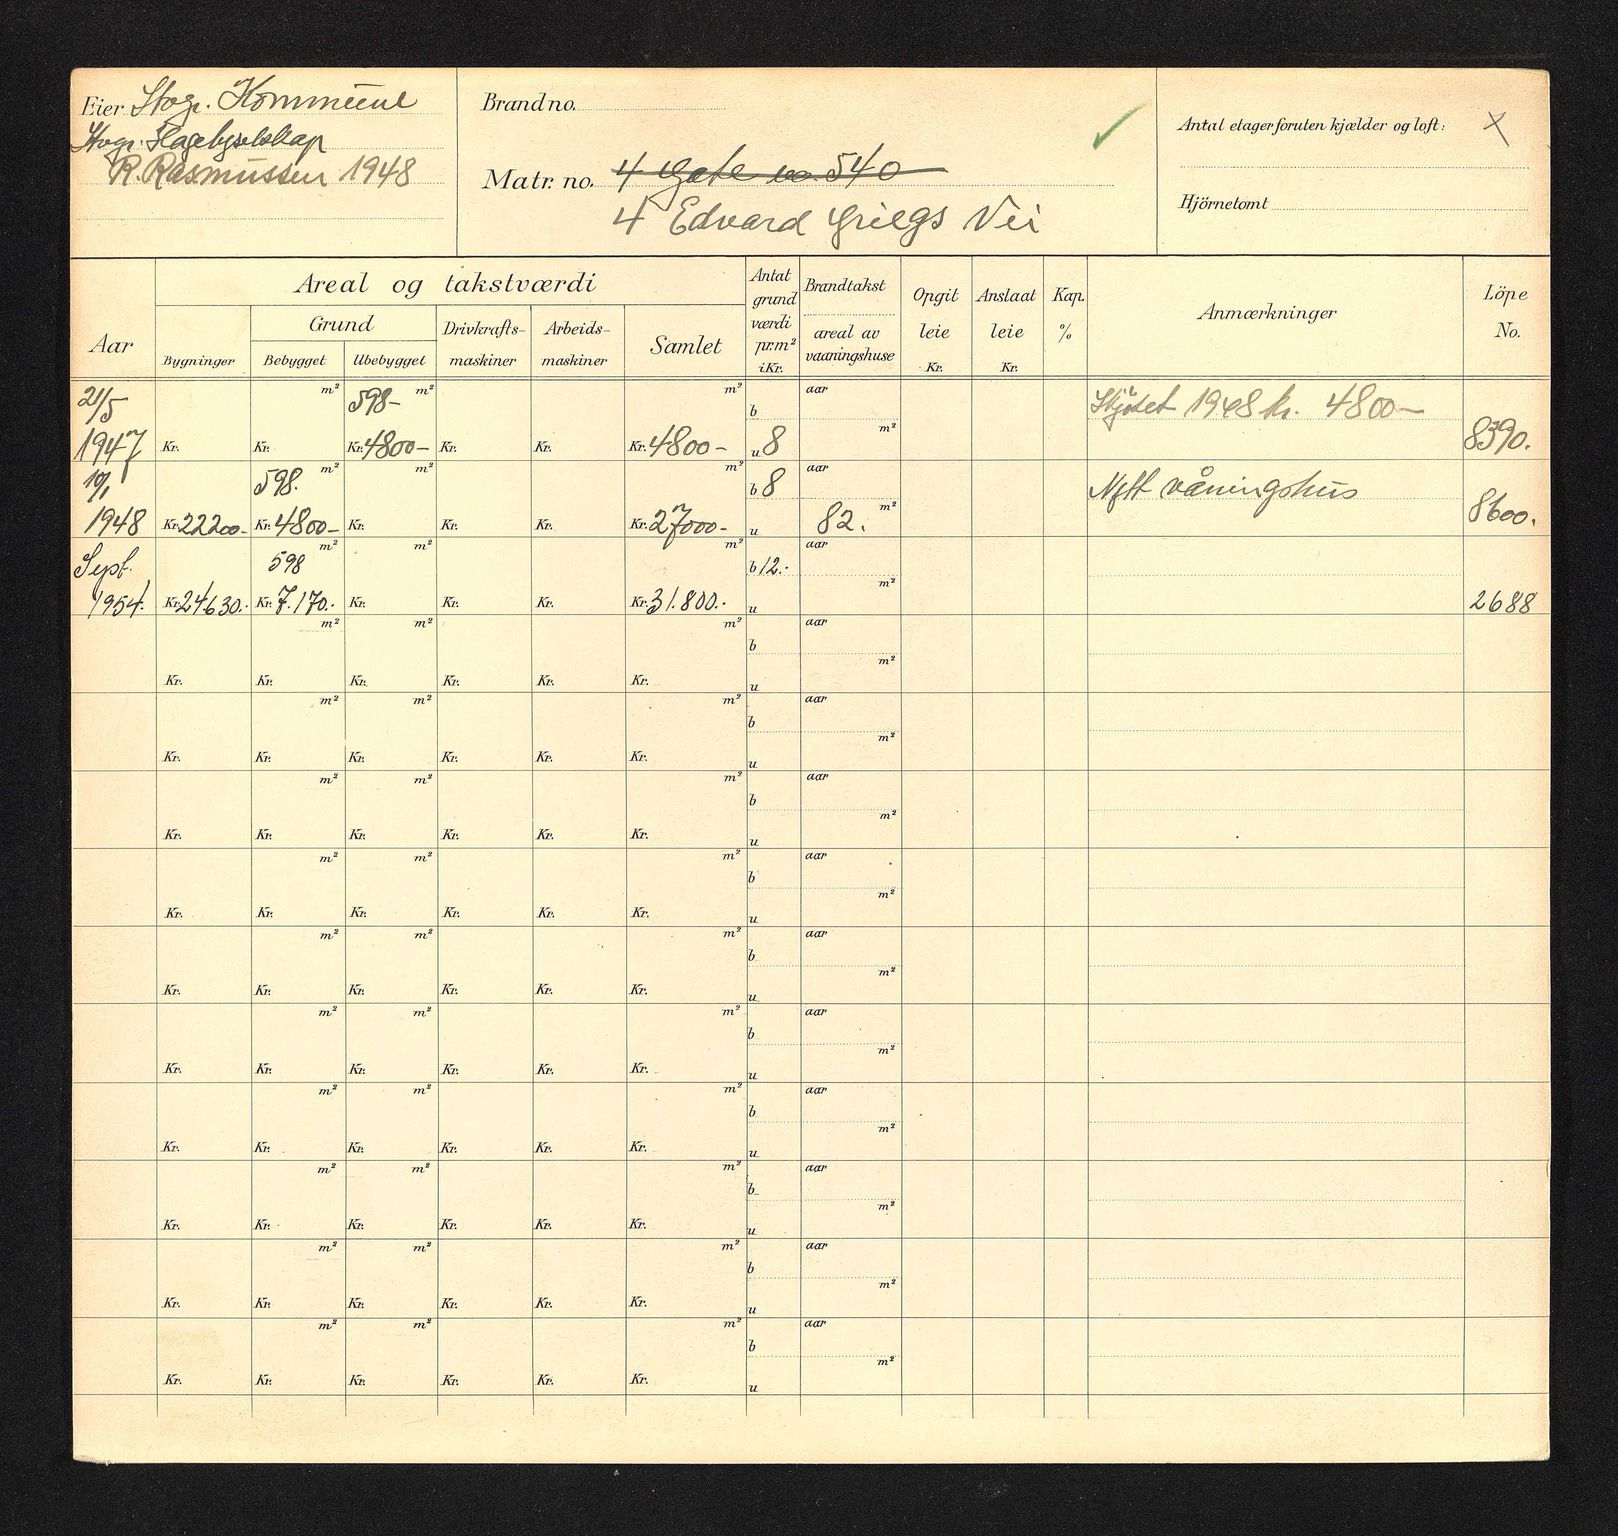 Eier Stvgr. Kommune
Stvgr. Hagebyselskap
R. Rasmussen 1948
Brand no.
Matr. no. 4 Gate no. 540
4 Edvard Griegs Vei
Antal etager foruten kjælder og loft: x
Hjörnetomt
Aar
Areal og takstværdi
Bygninger
Grund
Bebygget Ubebygget
Drivkrafts-
maskiner
Arbeids-
maskiner
Samlet
Antat
grund
værdi
pr.m²
i Kr.
Brandtakst
areal av
vaaningshuse
Opgit
leie
Kr.
Anslaat
leie
Kr.
Kap.
%
Anmærkninger
Löpe
No.
21/5 m² 598- m² m² b aar Skjötet 1948 kr. 4800-
1947 Kr. Kr. Kr. 4800- Kr. Kr. Kr. 4800- u 8 m² 8390.
10/1 598. m² m² m² b 8 aar Nytt våningshus
1948 Kr. 22200- Kr. 4800- Kr. Kr. Kr. Kr. 27000- u 82. m² 8600.
Sept. 598 m² m² m² b 12.- aar
1954. Kr. 24630.- Kr. 7.170.- Kr. Kr. Kr. Kr. 31.800.- u m² 2688
m² m² m² b aar
Kr. Kr. Kr. Kr. Kr. Kr. u m²
m² m² m² b aar
Kr. Kr. Kr. Kr. Kr. Kr. u m²
m² m² m² b aar
Kr. Kr. Kr. Kr. Kr. Kr. u m²
m² m² m² b aar
Kr. Kr. Kr. Kr. Kr. Kr. u m²
m² m² m² b aar
Kr. Kr. Kr. Kr. Kr. Kr. u m²
m² m² m² b aar
Kr. Kr. Kr. Kr. Kr. Kr. u m²
m² m² m² b aar
Kr. Kr. Kr. Kr. Kr. Kr. u m²
m² m² m² b aar
Kr. Kr. Kr. Kr. Kr. Kr. u m²
m² m² m² b aar
Kr. Kr. Kr. Kr. Kr. Kr. u m²
m² m² m² b aar
Kr. Kr. Kr. Kr. Kr. Kr. u m²